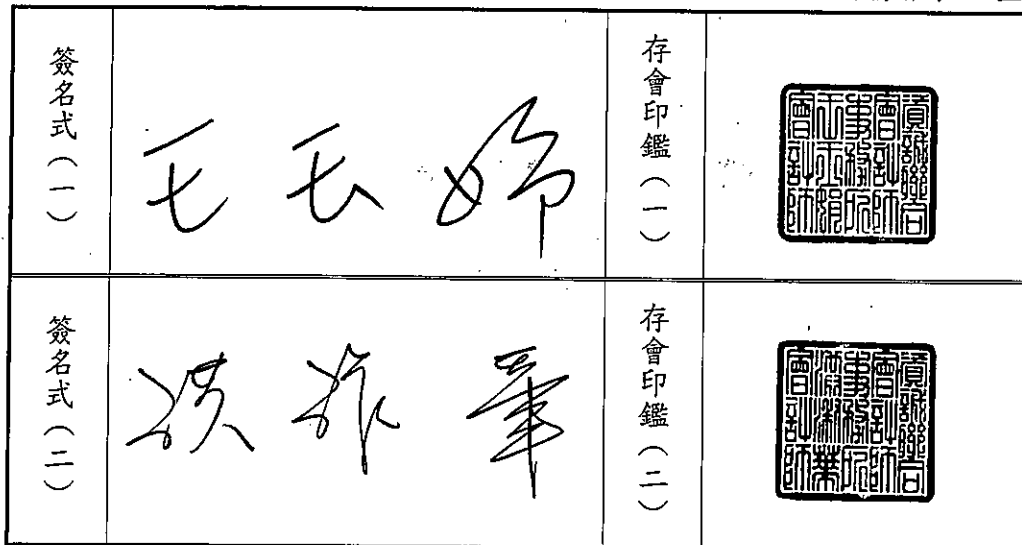 簽名式（一）
王玉娟
存會印鑑（一）
資誠聯合
會計師
事務所
王玉娟
會計師
簽名式（二）
洪淑華
存會印鑑（二）
資誠聯合
會計師
事務所
洪淑華
會計師